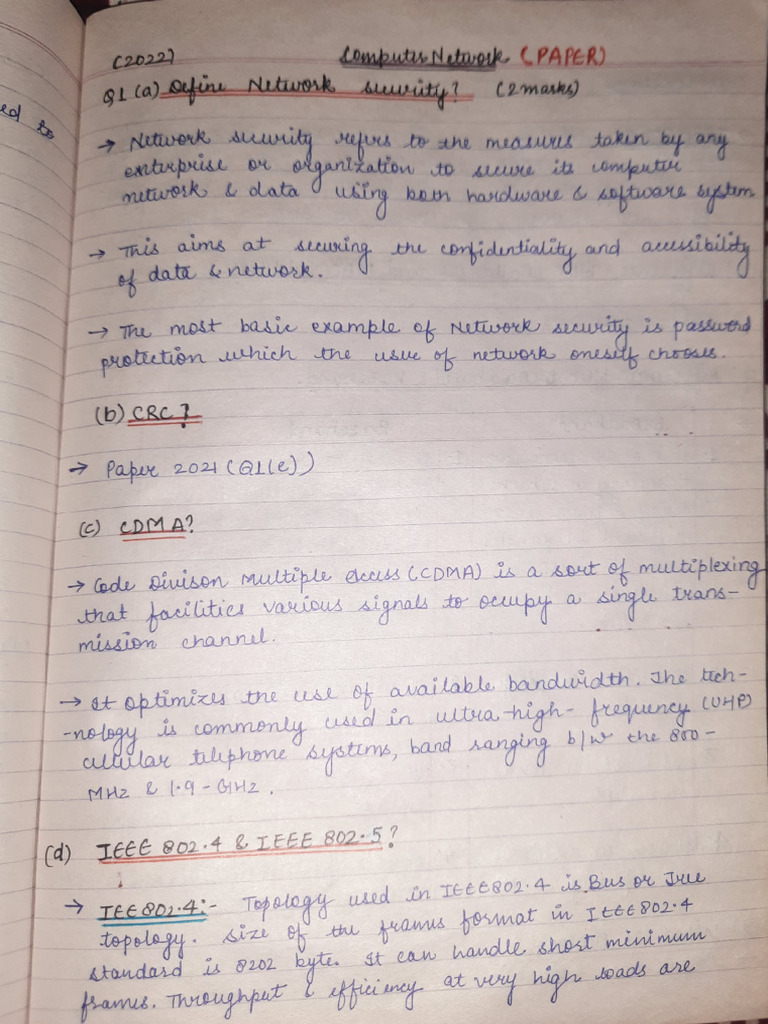 ed to
(2022) Computer Network (PAPER)
Q1 (a) Define Network security? (2marks)
→ Network security refers to the measures taken by any
enterprise or organization to secure its computer
network & data using both hardware & software system
→ This aims at securing the confidentiality and accessibility
of data & network.
→ The most basic example of Network security is password
protection which the user of network oneself chooses.
(b) CRC?
→ Paper 2021 (Q1(e))
(c) CDMA?
→ Code Divison Multiple Access (CDMA) is a sort of multiplexing
that facilities various signals to occupy a single trans-
mission channel.
→ It optimizes the use of available bandwidth. The tech-
-nology is commonly used in ultra-high-frequency (UHF)
cellular telephone systems, band ranging b/w the 800-
MHz & 1.9-GHz.
(d) IEEE 802.4 & IEEE 802.5?
→ IEE 802.4:- Topology used in IEEE 802.4 is Bus or Tree
topology. Size of the frames format in IEEE 802.4
standard is 8202 byte. It can handle short minimum
frames. Throughput & efficiency at very high loads are